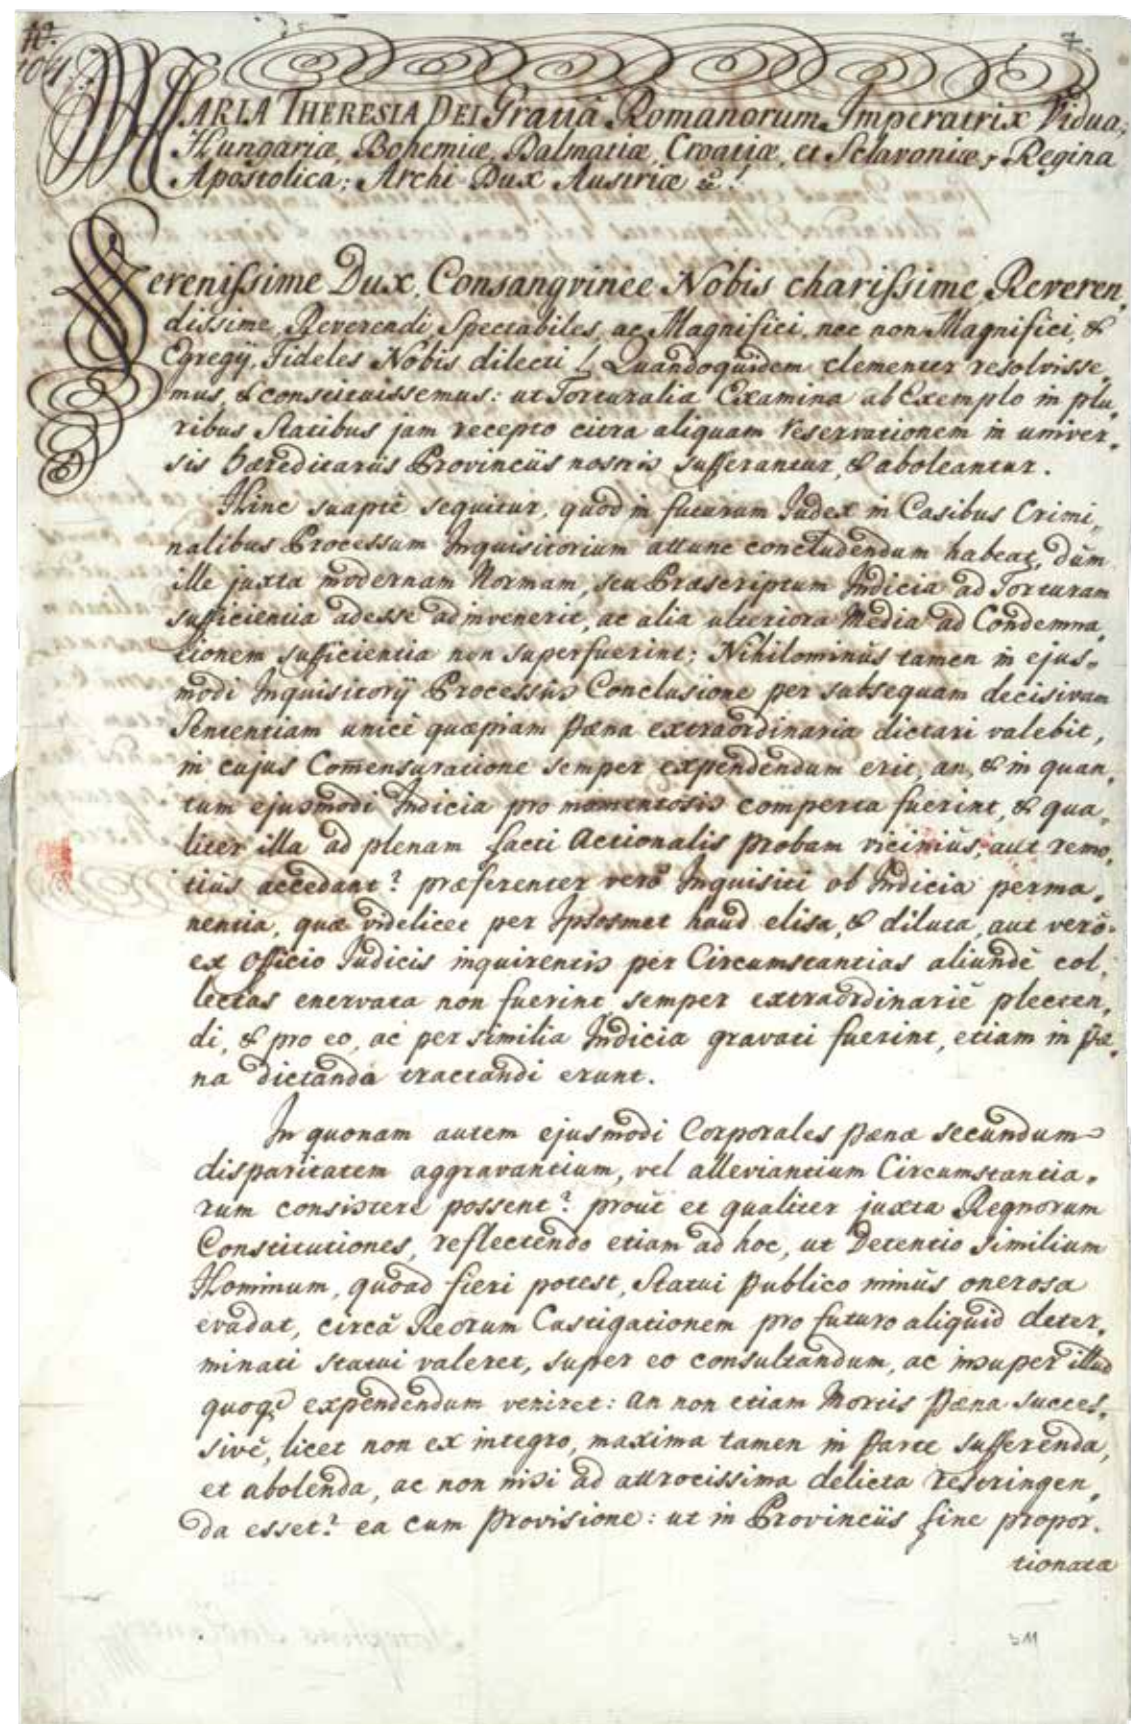 7.
MARIA THERESIA DEI Gratiâ Romanorum Imperatrix Vidua,
Hungariæ, Bohemiæ, Dalmatiæ, Croatiæ, et Sclavoniæ, Regina
Apostolica; Archi Dux Austriæ &c!
Serenissime Dux, Consangvinee Nobis charissime, Reveren,
dissime, Reverendi, Spectabiles, ac Magnifici, nec non Magnifici, &
Egregij, Fideles Nobis dilecti! Quandoquidem clementer resolvisse,
mus, & constituissemus: ut Torturalia Examina ab Exemplo in plu,
ribus Statibus jam recepto citra aliquam reservationem in univer,
sis hæreditariis Provinciis nostris sufferantur, & aboleantur.
Hinc suaptè sequitur, quòd in futurum Judex in Casibus Crimi,
nalibus Processum Inquisitorium attunc concludendum habeat, dùm
ille juxta modernam Normam, seu Præscriptum Indicia ad Torturam
sufficientia adesse adinvenerit, ac alia ulteriora Media ad Condemna,
tionem sufficientia non superfuerint; Nihilominùs tamen in ejus,
modi Inquisitorij Processûs Conclusione per subsequam decisivam
Sententiam unicè quæpiam pæna extraordinaria dictari valebit,
in cujus Com̃ensuratione semper expendendum erit, an, & in quan,
tum ejusmodi Indicia pro momentosis comperta fuerint, & qua,
liter illa ad plenam facti actionalis probam viciniùs, aut remo,
tiùs accedant? præferenter verò Inquisiti ob Indicia perma,
nentia, quæ videlicet per Ipsosmet haud elisa, & diluta, aut verò
ex Officio Judicis inquirentis per Circumstantias aliundè col,
lectas enervata non fuerint, semper extraordinariè plecten,
di, & pro eo, ac per similia Indicia gravati fuerint, etiam in pæ,
na dictanda tractandi erunt.
In quonam autem ejusmodi Corporales pænæ secundum
disparitatem aggravantium, vel alleviantium Circumstantia,
rum consistere possent? proùt et qualiter juxta Regnorum
Constitutiones, reflectendo etiam ad hoc, ut Detentio similium
Hominum, quoad fieri potest, Statui publico minùs onerosa
evadat, circà Reorum Castigationem pro futuro aliquid deter,
minati statui valeret, super eo consultandum, ac insuper illud
quoq, expendendum veniret: an non etiam Mortis pæna succes,
sivè, licet non ex integro, maxima tamen in parte sufferenda,
et abolenda, ac non nisi ad attrocissima delicta restringen,
da esset? ea cum provisione: ut in Provinciis sine propor,
tionata